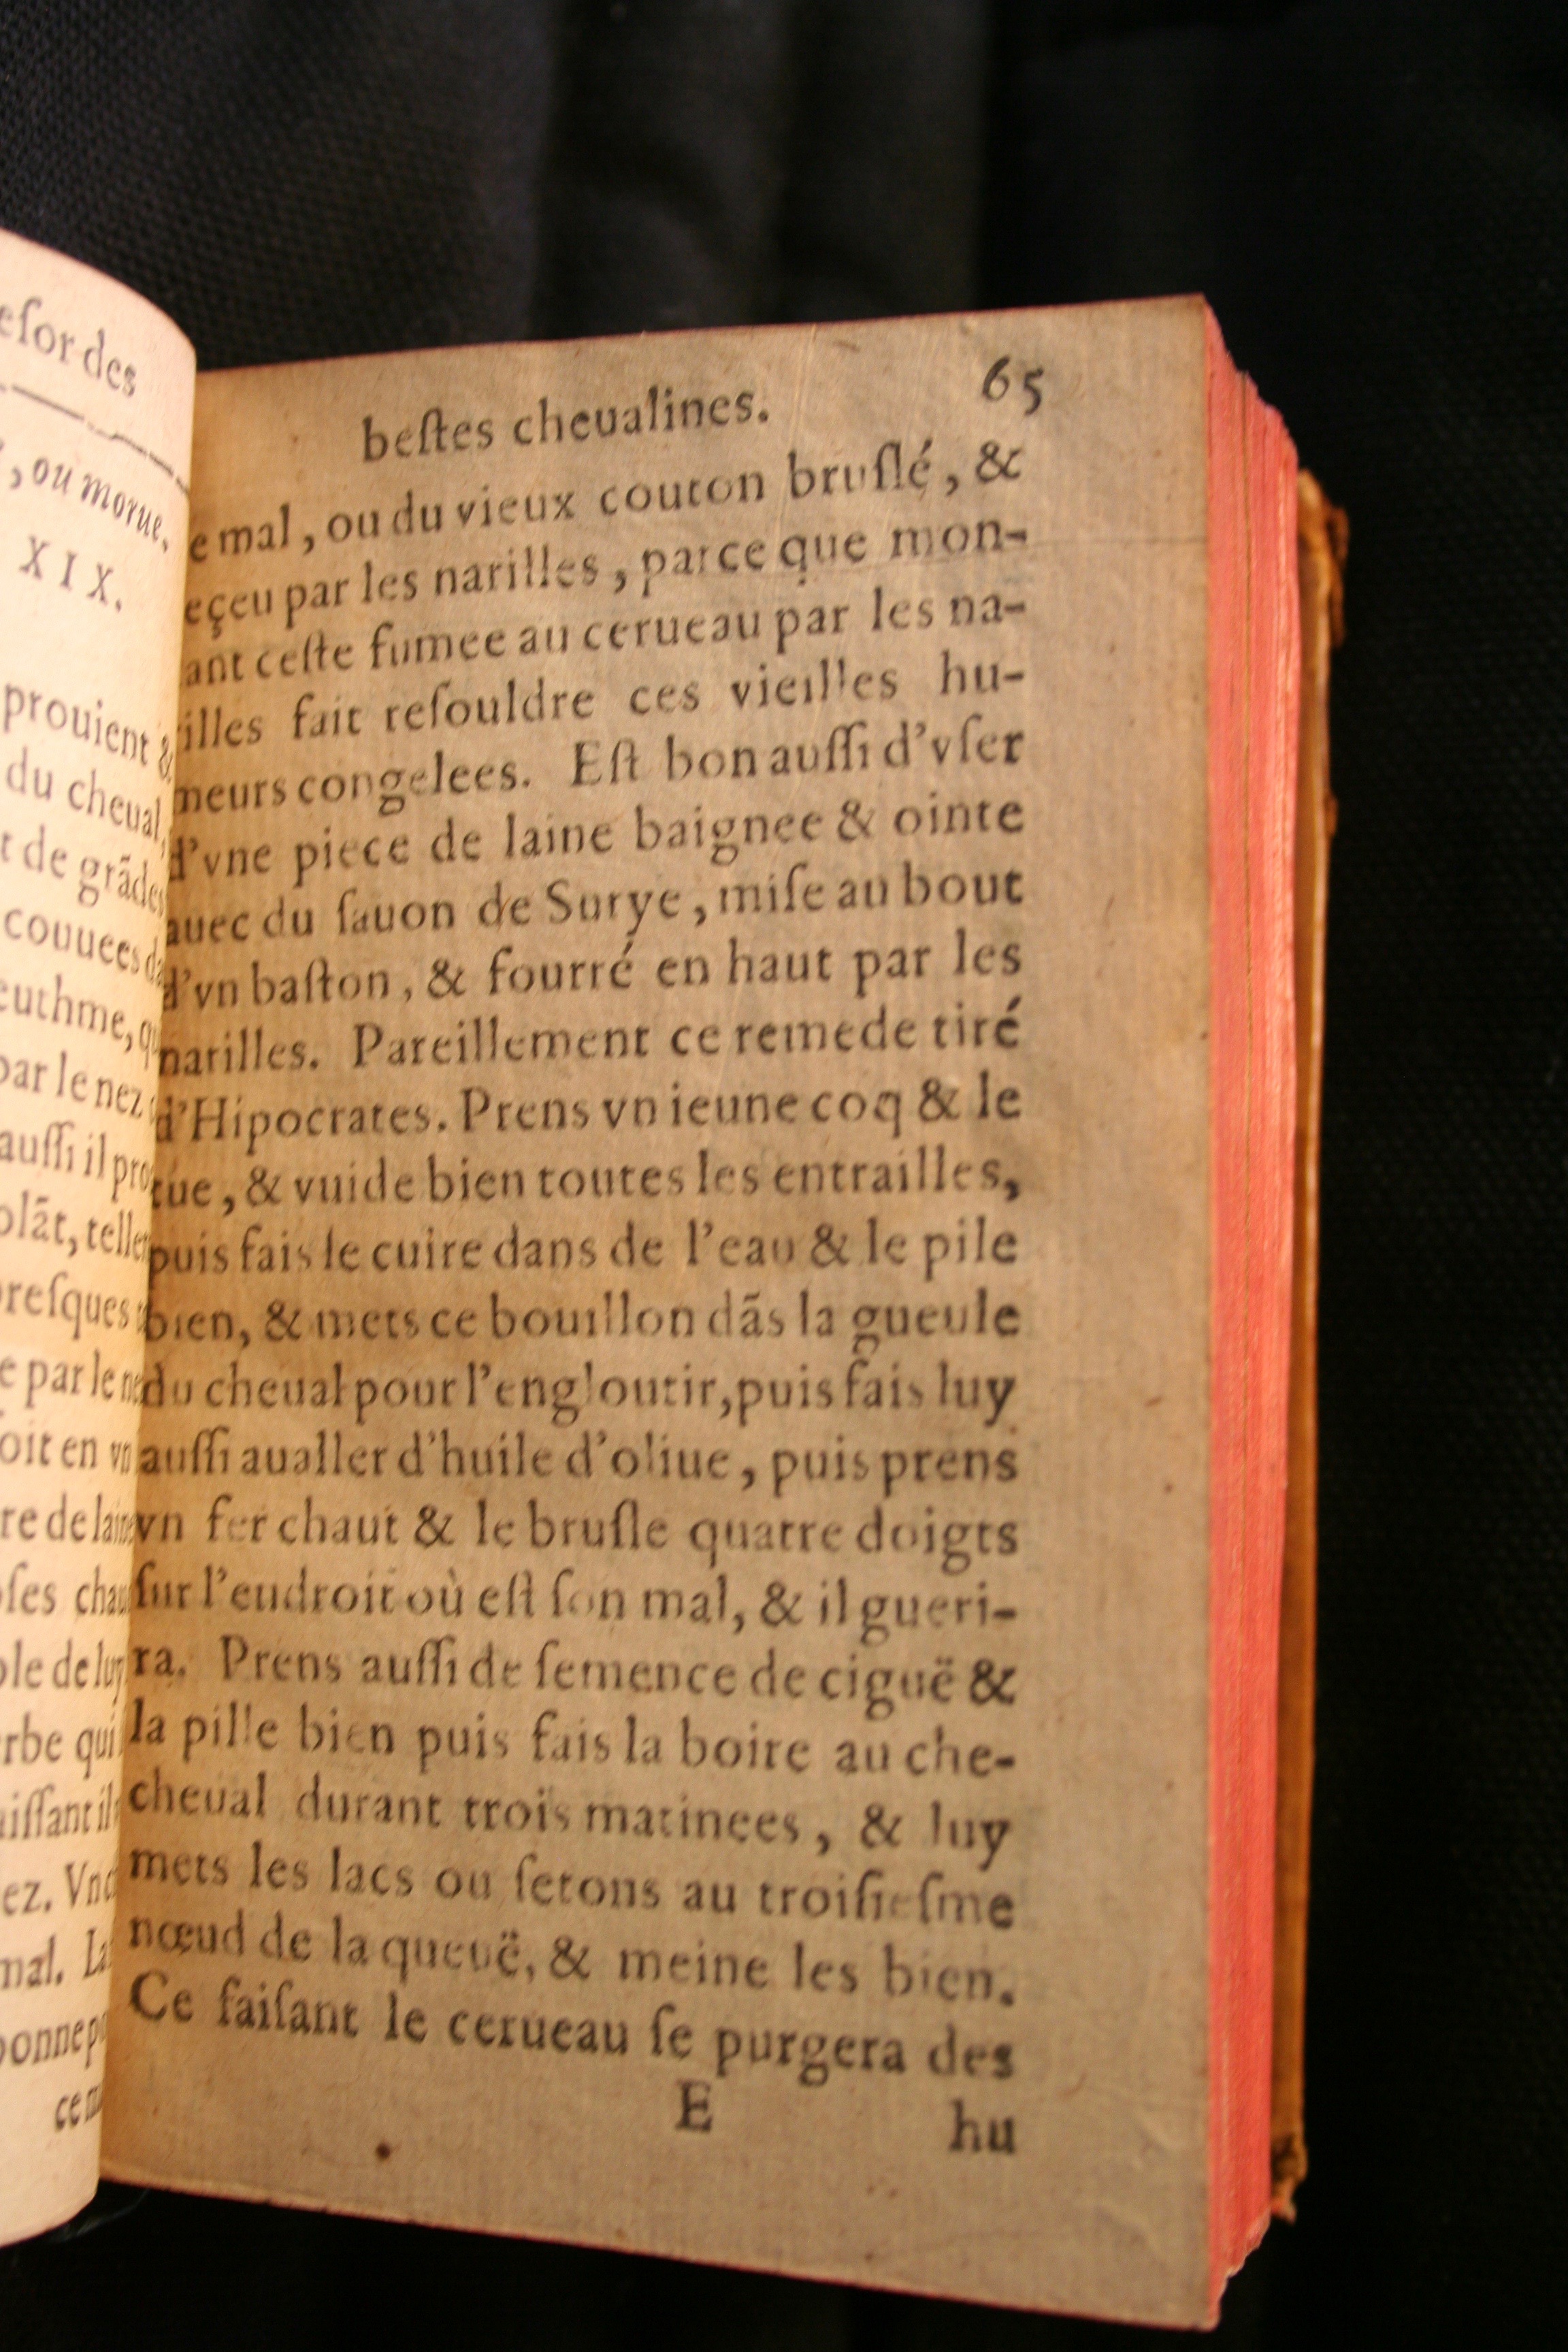 esor des
, ou morue.
XIX.
prouient &
du cheual,
de grādes
couuees
euthme,
par le nez
aussi il pro
olāt, telle
presques
e par le
oit en vn
re de laine
oses
ble de luy
erbe qui
uissant il
ez. Vn
mal. La
bonne
ce
bestes cheualines. 65
e mal, ou du vieux couton bruslé, &
eçeu par les narilles, parce que mon-
ant ceste fumee au cerueau par les na-
illes fait resouldre ces vieilles hu-
meurs congelees. Est bon aussi d'vser
d'vne piece de laine baignee & ointe
auec du sauon de Surye, mise au bout
d'vn baston, & fourré en haut par les
narilles. Pareillement ce remede tiré
d'Hipocrates. Prens vn ieune coq & le
tue, & vuide bien toutes les entrailles,
puis fais le cuire dans de l'eau & le pile
bien, & mets ce bouillon dās la gueule
du cheual pour l'engloutir, puis fais luy
aussi aualler d'huile d'oliue, puis prens
vn fer chaut & le brusle quatre doigts
sur l'eudroit où est son mal, & il gueri-
ra. Prens aussi de semence de ciguë &
la pille bien puis fais la boire au che-
cheual durant trois matinees, & luy
mets les lacs ou setons au troisiesme
nœud de la queuë, & meine les bien.
Ce faisant le cerueau se purgera des
E hu